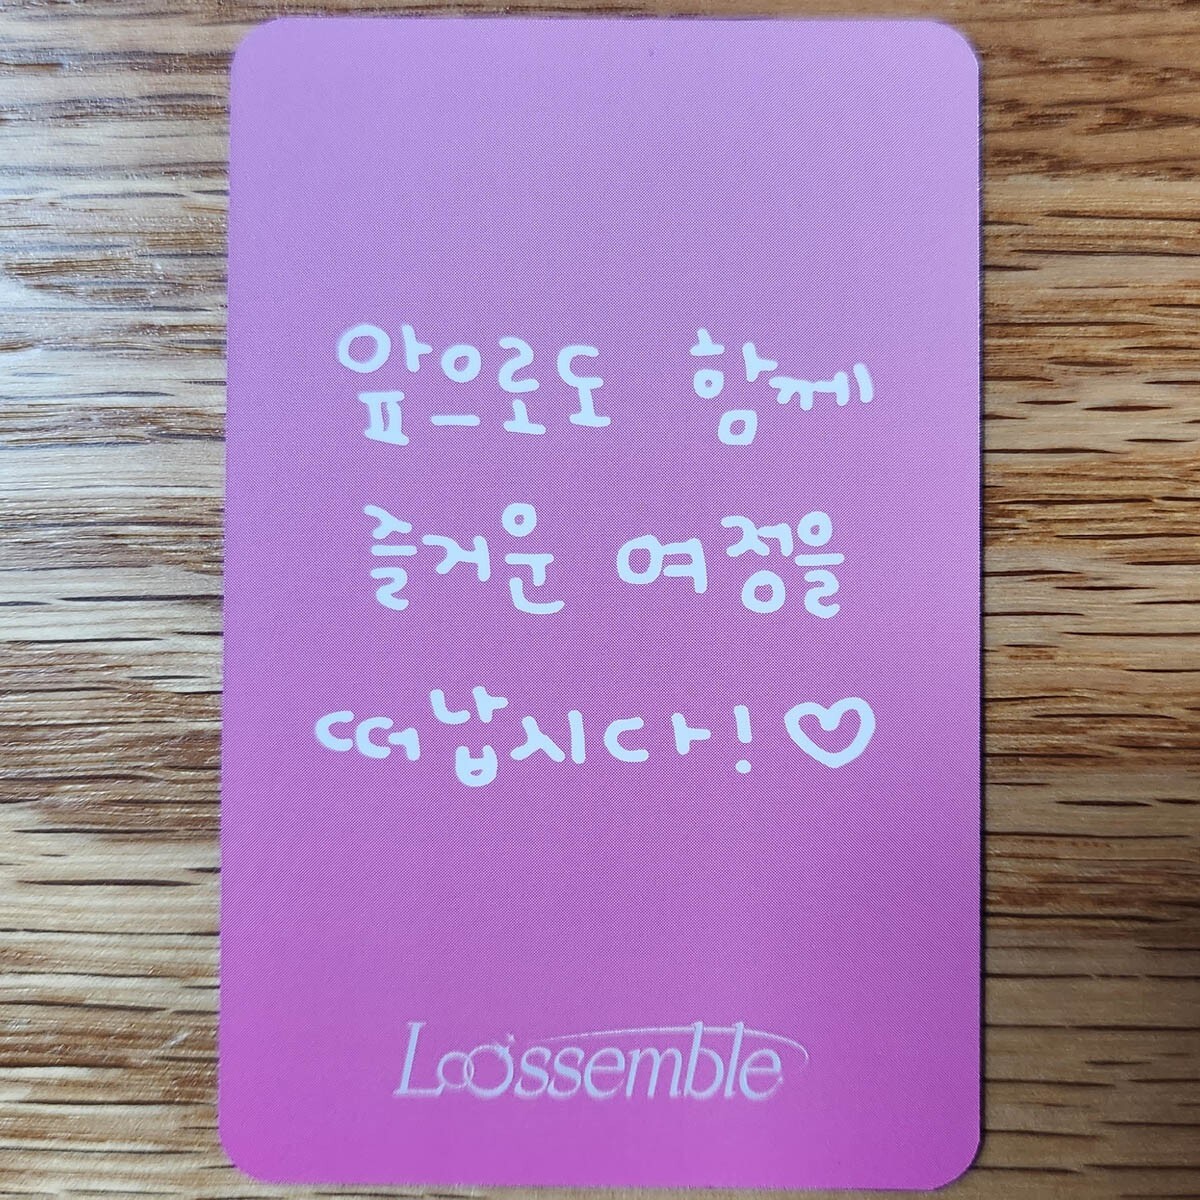 앞으로도 함께
즐거운 여정을
떠납시다!♡
Loossemble